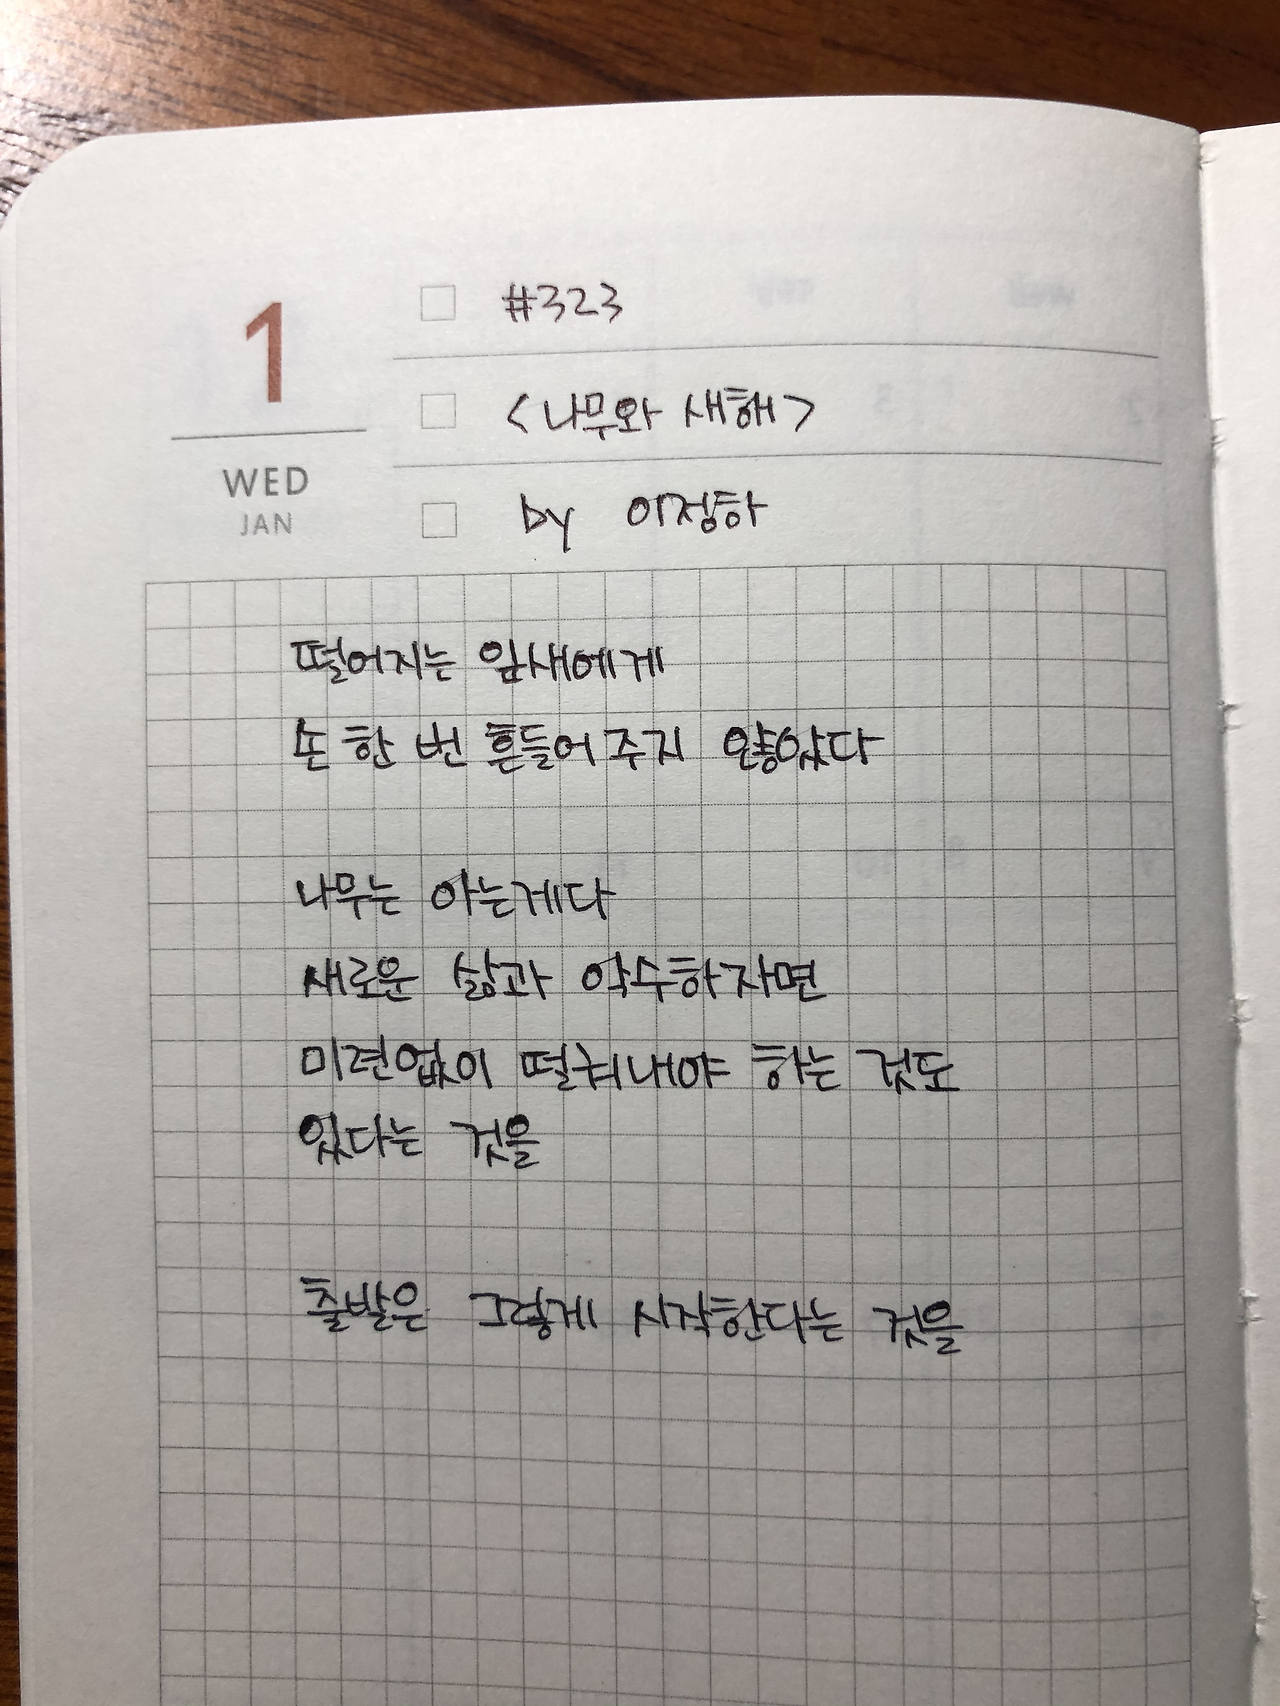 1
WED
JAN
#323
<나무와 새해>
by 이정하
떨어지는 잎새에게
손 한 번 흔들어 주지 않았다
나무는 아는게다
새로운 삶과 악수하자면
미련없이 떨궈내야 하는 것도
있다는 것을
출발은 그렇게 시작한다는 것을